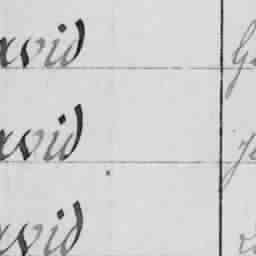 avid
avid
avid